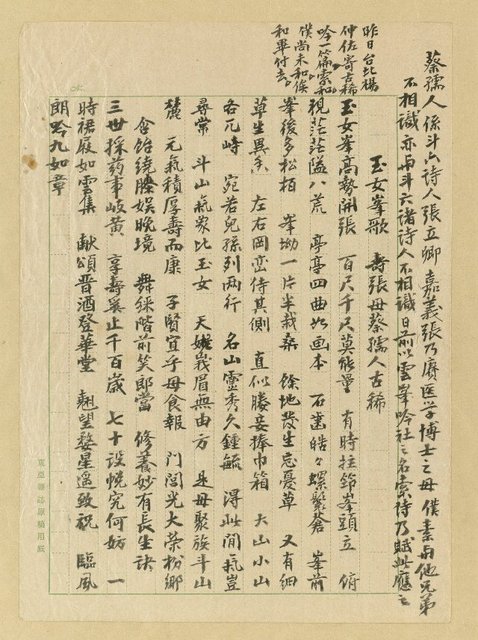 蔡孺人係斗六詩人張立卿嘉義張乃賡医学博士之母僕素與他兄弟
不相識亦與斗六諸詩人不相識日前以雲峯吟社之名索詩乃賦此應之
昨日台北楊
仲佐寄古稀
吟一篇索和
僕尚未和俟
和畢付去
玉女峯歌 壽張母蔡孺人古稀
玉女峯高勢開張 百尺千尺莫能量 有時拄笻峯頭立 俯
視茫茫隘八荒 亭亭四曲如画本 石齒皓々螺髻蒼 峯前
峯後多松柏 峯坳一片半栽桑 餘地發生忘憂草 又有細
草生異香 左右岡巒侍其側 直似媵妾捧巾箱 大山小山
各兀峙 宛若兒孫列兩行 名山靈秀久鍾毓 淂此間氣豈
尋常 斗山氣象比玉女 天姥峩眉無由方 是母聚族斗山
麓 元氣積厚壽而康 子賢宜乎母食報 門閭光大荣枌鄉
含飴繞膝娱晚境 舞綵階前笑郎當 修養妙有長生訣
三世採药事岐黄 享壽奚止千百歲 七十設帨究何妨 一
時裙屐如雲集 献頌晋酒登華堂 翹望婺星遙致祝 臨风
朗吟九如章
東亞雜誌原稿用紙